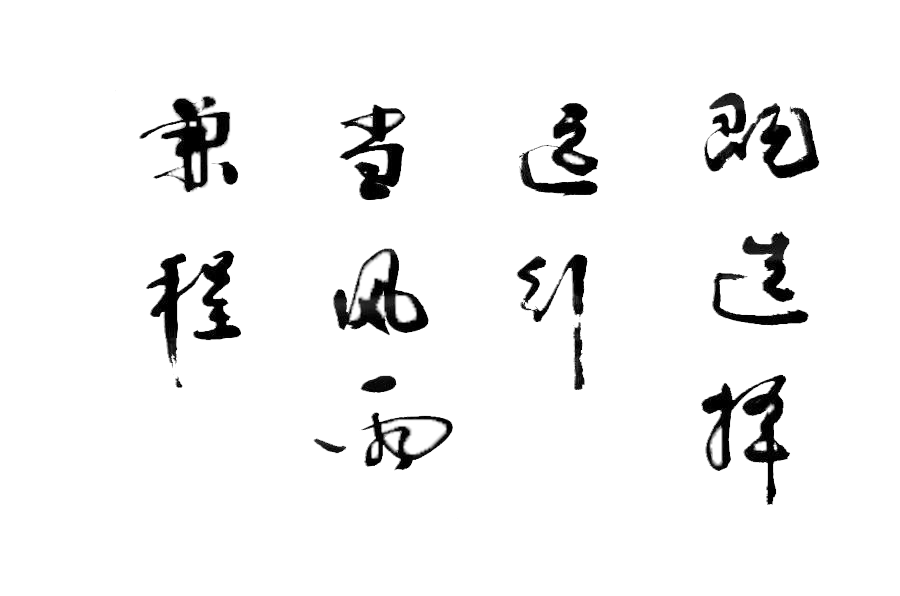 既选择
远行
当风雨
兼程